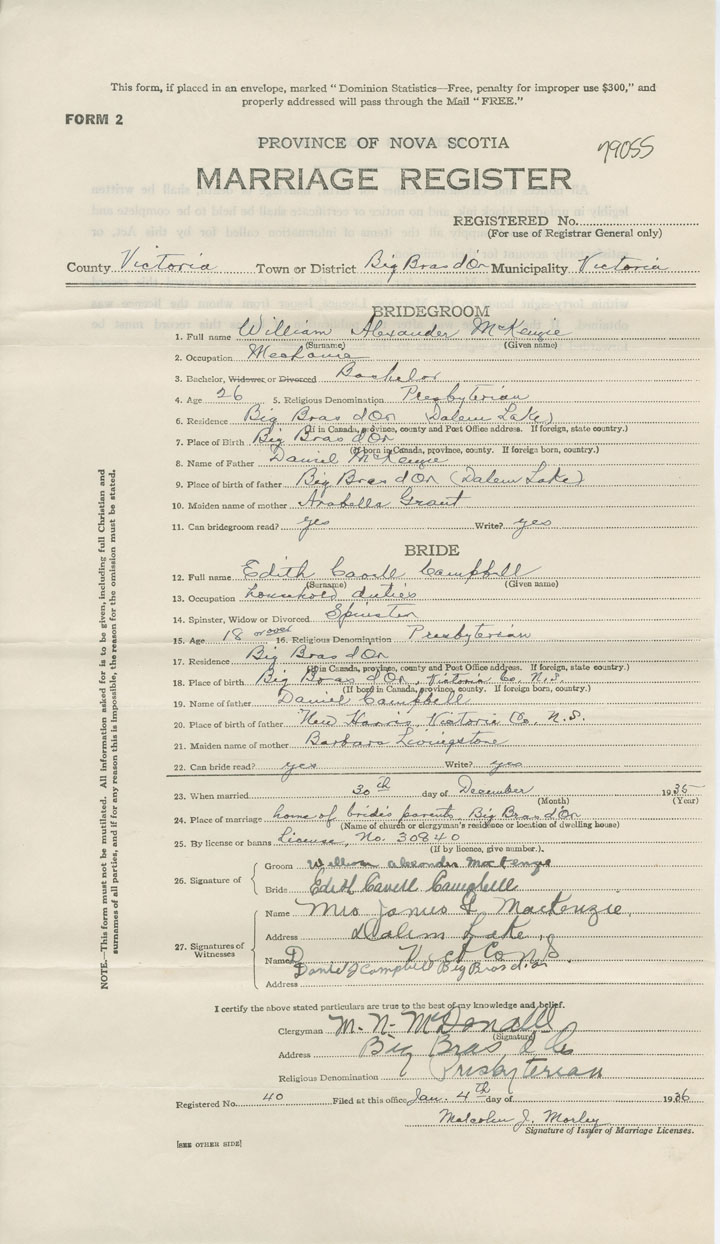 This form, if placed in an envelope, marked "Dominion Statistics—Free, penalty for improper use $300," and
properly addressed will pass through the Mail "FREE."
FORM 2
PROVINCE OF NOVA SCOTIA
79055
MARRIAGE REGISTER
REGISTERED No.
(For use of Registrar General only)
County Victoria Town or District Big Bras d'Or Municipality Victoria
BRIDEGROOM
1. Full name William Alexander McKenzie
(Surname) (Given name)
2. Occupation Mechanic
3. Bachelor, Widower or Divorced Bachelor
4. Age 26 5. Religious Denomination Presbyterian
6. Residence Big Bras d'Or (Dalem Lake)
(If in Canada, province, county and Post Office address. If foreign, state country.)
7. Place of Birth Big Bras d'Or
(If born in Canada, province, county. If foreign born, country.)
8. Name of Father Daniel McKenzie
9. Place of birth of father Big Bras d'Or (Dalem Lake)
10. Maiden name of mother Arabella Grant
11. Can bridegroom read? yes Write? yes
BRIDE
12. Full name Edith Cavell Campbell
(Surname) (Given name)
13. Occupation household duties
14. Spinster, Widow or Divorced Spinster
15. Age 18 or over 16. Religious Denomination Presbyterian
17. Residence Big Bras d'Or
(If in Canada, province, county and Post Office address. If foreign, state country.)
18. Place of birth Big Bras d'Or, Victoria Co. N.S.
(If born in Canada, province, county. If foreign born, country.)
19. Name of father Daniel Campbell
20. Place of birth of father New Harris, Victoria Co. N.S.
21. Maiden name of mother Barbara Livingstone
22. Can bride read? yes Write? yes
23. When married 30th day of December 1935
(Month) (Year)
24. Place of marriage home of bride's parents, Big Bras d'Or
(Name of church or clergyman's residence or location of dwelling house)
25. By license or banns License, No. 30840
(If by licence, give number.)
26. Signature of
Groom William Alexander MacKenzie
Bride Edith Cavell Campbell
27. Signatures of Witnesses
Name Mrs James MacKenzie,
Address Dalem Lake,
Vict Co N.S.
Name Daniel J Campbell Big Bras d'Or
Address
I certify the above stated particulars are true to the best of my knowledge and belief.
Clergyman M. N. McDonald
(Signature)
Address Big Bras
Religious Denomination Presbyterian
Registered No. 40 Filed at this office Jan. 4th day of 1936
Malcolm J. Morley
Signature of Issuer of Marriage Licenses.
[SEE OTHER SIDE]
NOTE.—This form must not be mutilated. All information asked for is to be given, including full Christian and
surnames of all parties, and if for any reason this is impossible, the reason for the omission must be stated.